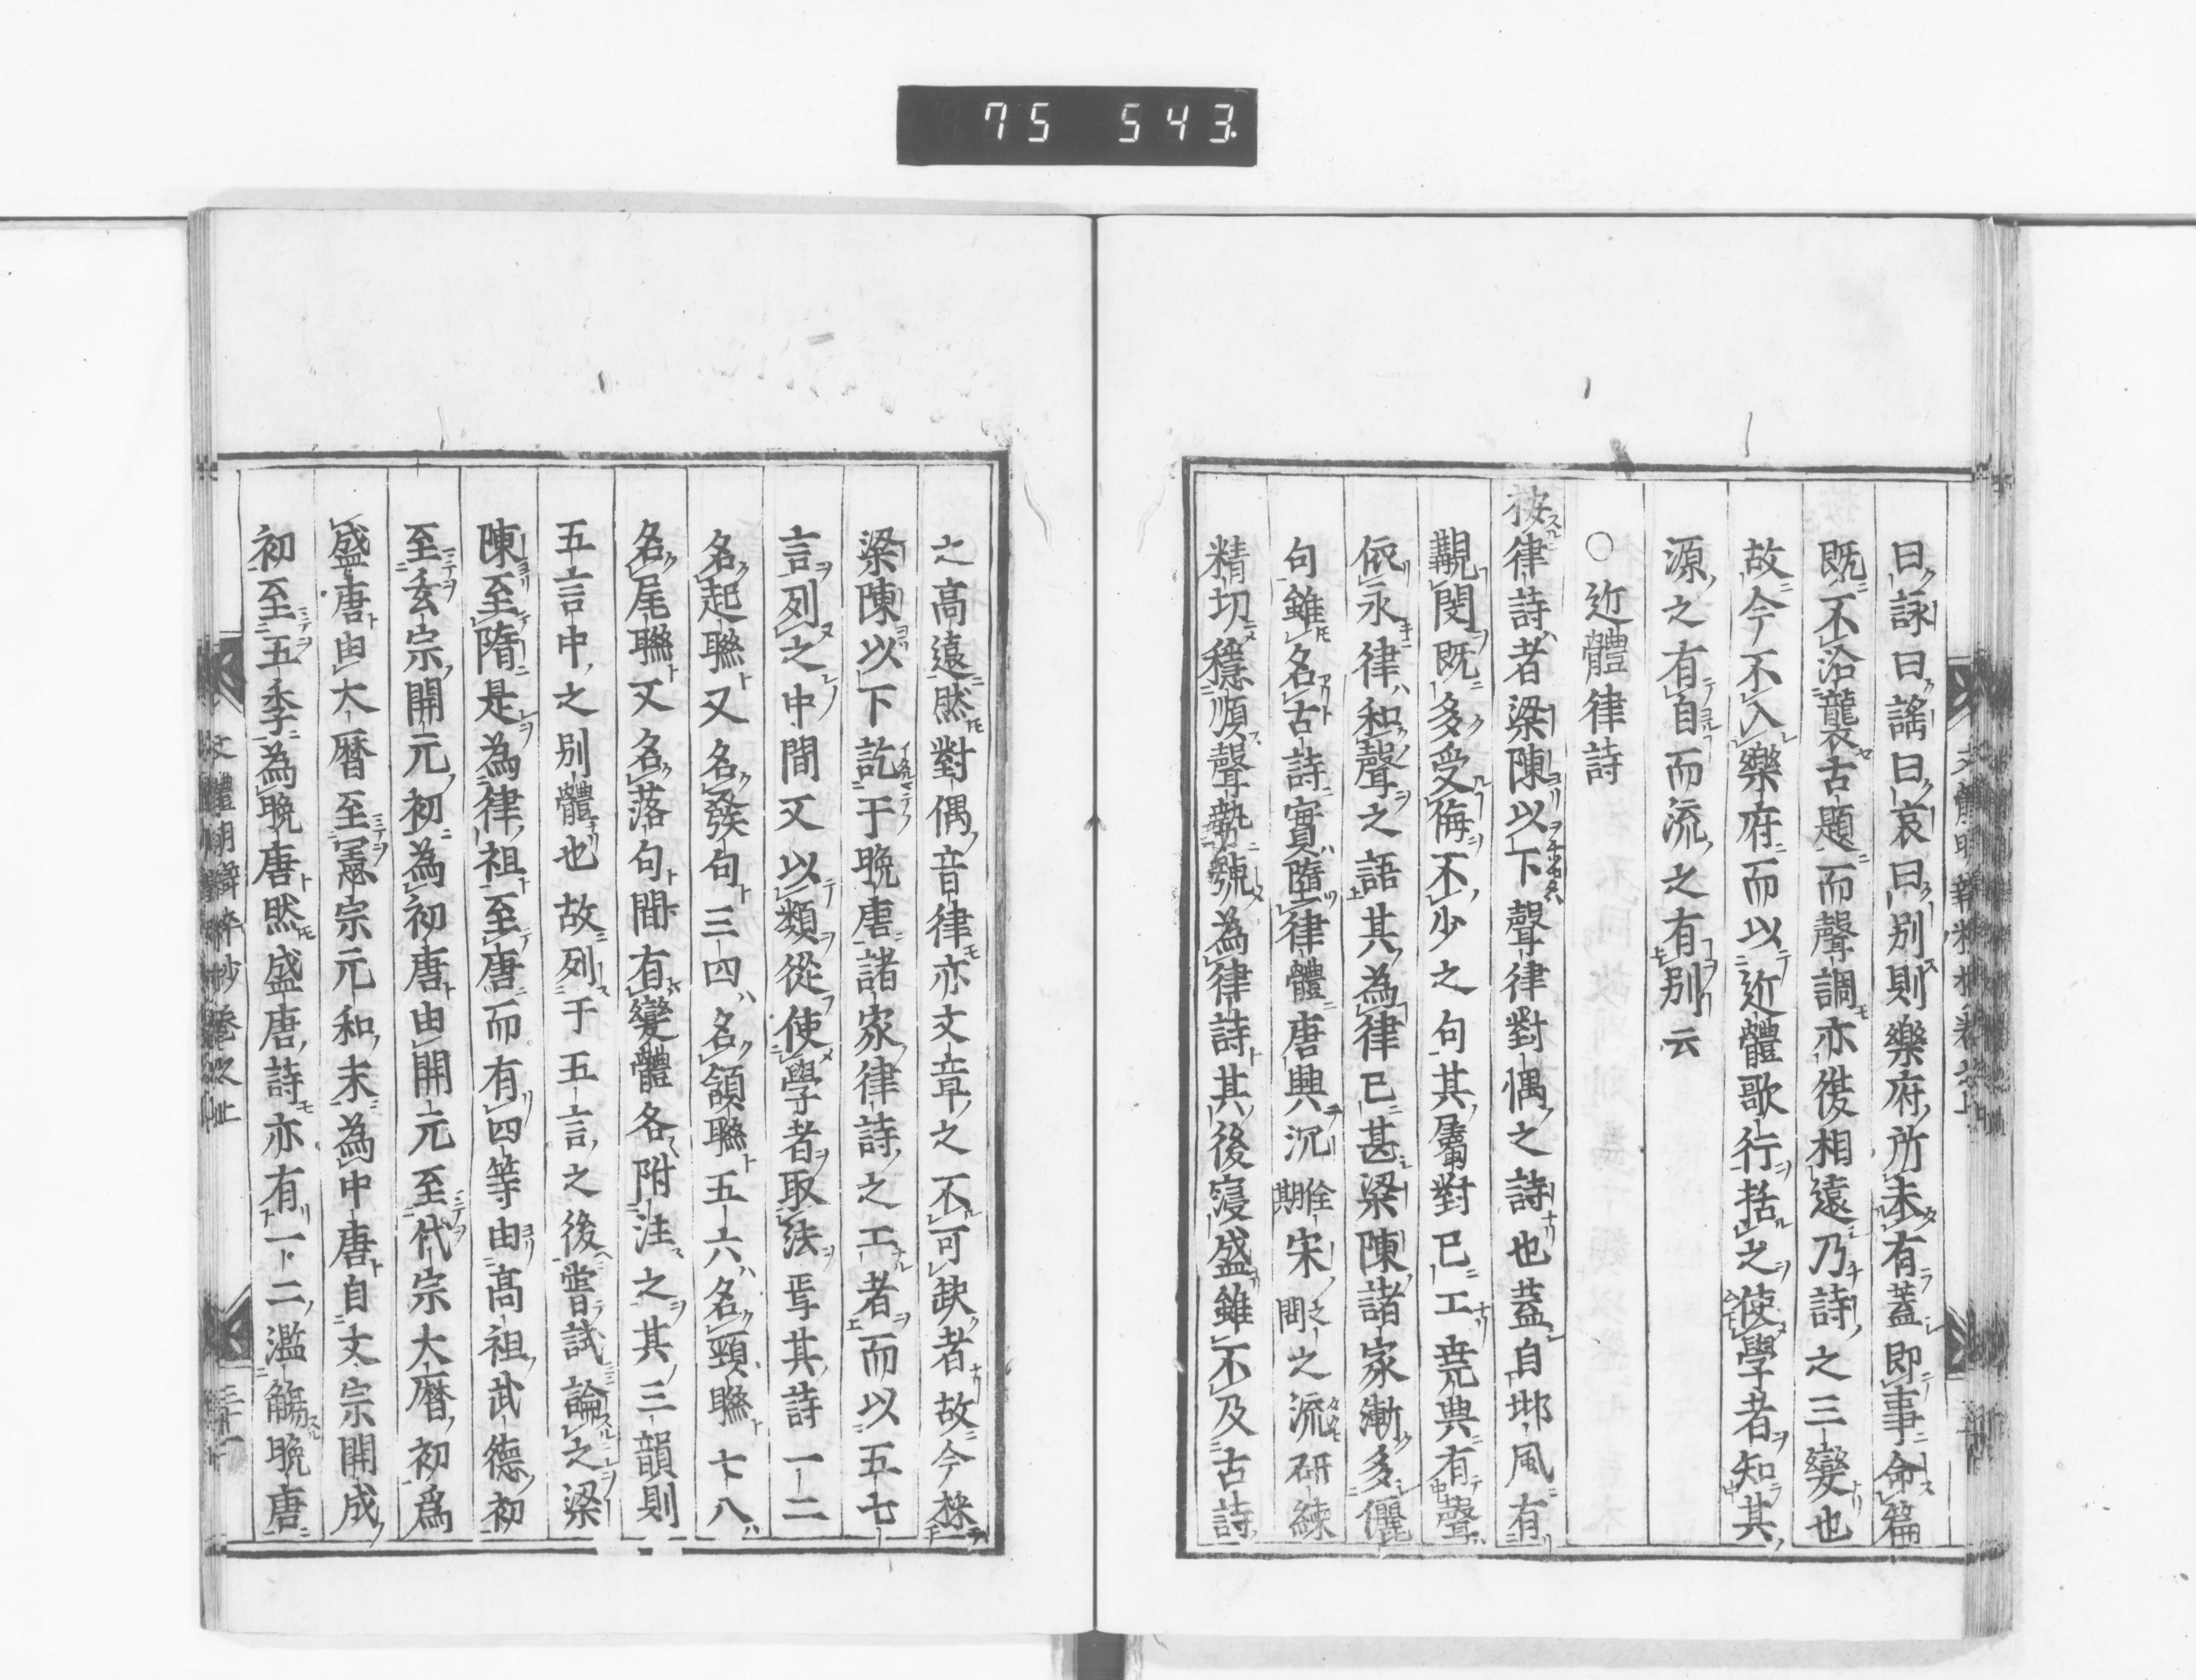 75 543.
曰詠曰謠曰哀曰別則樂府所未有蓋即事命篇
既不沿襲古題而聲調亦復相遠乃詩之三變也
故今不入樂府而以近體歌行括之使學者知其
源之有自而流之有別云
○近體律詩
按律詩者梁陳以下聲律對偶之詩也蓋自邶風有
覯閔既多受侮不少之句其屬對已工堯典有聲
依永律和聲之語其為律已甚梁陳諸家漸多儷
句雖名古詩實墮律體唐興沉佺期宋之問之流研練
精切穩順聲勢號為律詩其後寖盛雖不及古詩
之高遠然對偶音律亦文章之不可缺者故今採
梁陳以下訖于晚唐諸家律詩之工者而以五七
言列之中間又以類從使學者取法焉其詩一二
名起聯又名發句三四名頷聯五六名頸聯七八
名尾聯又名落句間有變體各附注之其三韻則
五言中之別體也故列于五言之後嘗試論之梁
陳至隋是為律祖至唐而有四等由高祖武德初
至玄宗開元初為初唐由開元至代宗大曆初爲
盛唐由大曆至憲宗元和末為中唐自文宗開成
初至五季為晚唐然盛唐詩亦有一二濫觴晚唐
文體明辯粹抄卷之上
三十一